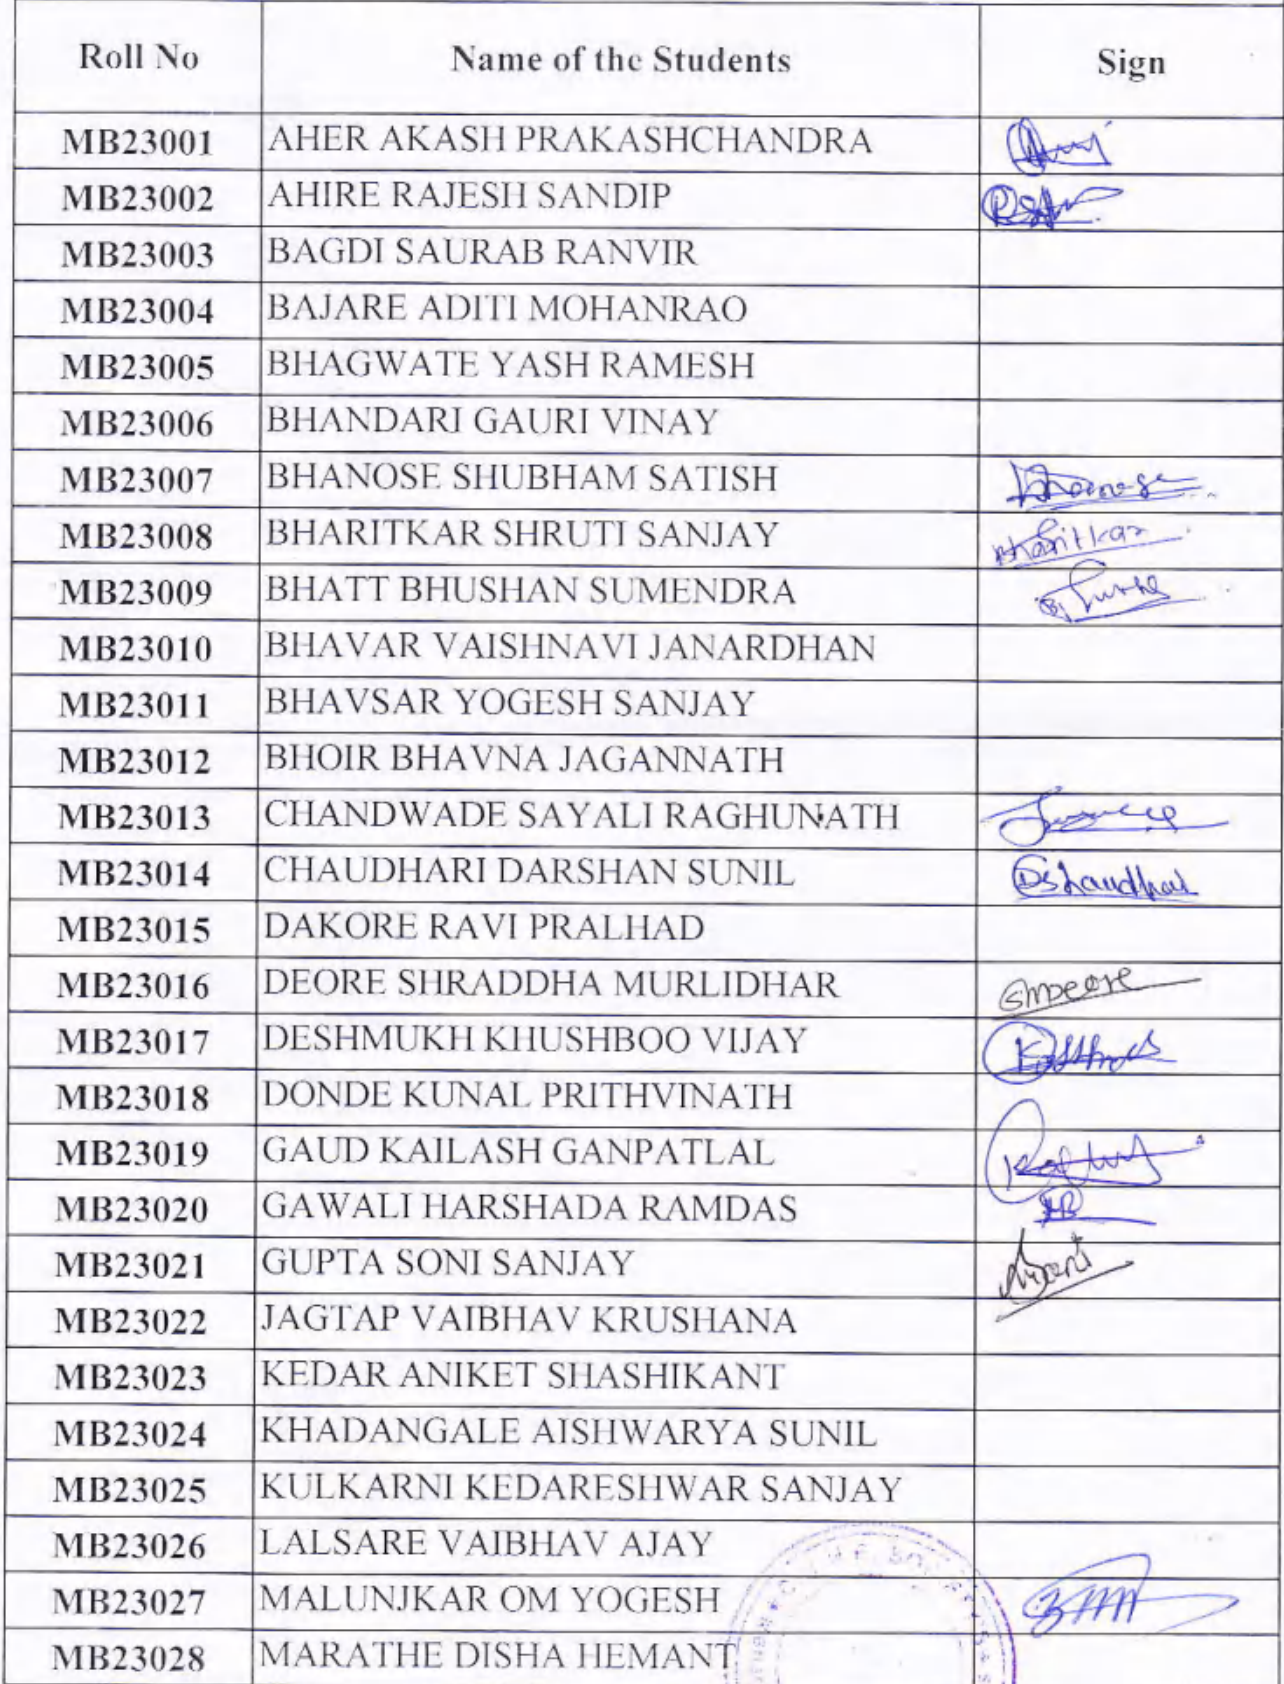 Roll No Name of the Students Sign
MB23001 AHER AKASH PRAKASHCHANDRA
MB23002 AHIRE RAJESH SANDIP
MB23003 BAGDI SAURAB RANVIR
MB23004 BAJARE ADITI MOHANRAO
MB23005 BHAGWATE YASH RAMESH
MB23006 BHANDARI GAURI VINAY
MB23007 BHANOSE SHUBHAM SATISH
MB23008 BHARITKAR SHRUTI SANJAY Bharitkar
MB23009 BHATT BHUSHAN SUMENDRA
MB23010 BHAVAR VAISHNAVI JANARDHAN
MB23011 BHAVSAR YOGESH SANJAY
MB23012 BHOIR BHAVNA JAGANNATH
MB23013 CHANDWADE SAYALI RAGHUNATH
MB23014 CHAUDHARI DARSHAN SUNIL
MB23015 DAKORE RAVI PRALHAD
MB23016 DEORE SHRADDHA MURLIDHAR SMDeore
MB23017 DESHMUKH KHUSHBOO VIJAY
MB23018 DONDE KUNAL PRITHVINATH
MB23019 GAUD KAILASH GANPATLAL
MB23020 GAWALI HARSHADA RAMDAS
MB23021 GUPTA SONI SANJAY
MB23022 JAGTAP VAIBHAV KRUSHANA
MB23023 KEDAR ANIKET SHASHIKANT
MB23024 KHADANGALE AISHWARYA SUNIL
MB23025 KULKARNI KEDARESHWAR SANJAY
MB23026 LALSARE VAIBHAV AJAY
MB23027 MALUNJKAR OM YOGESH
MB23028 MARATHE DISHA HEMANT